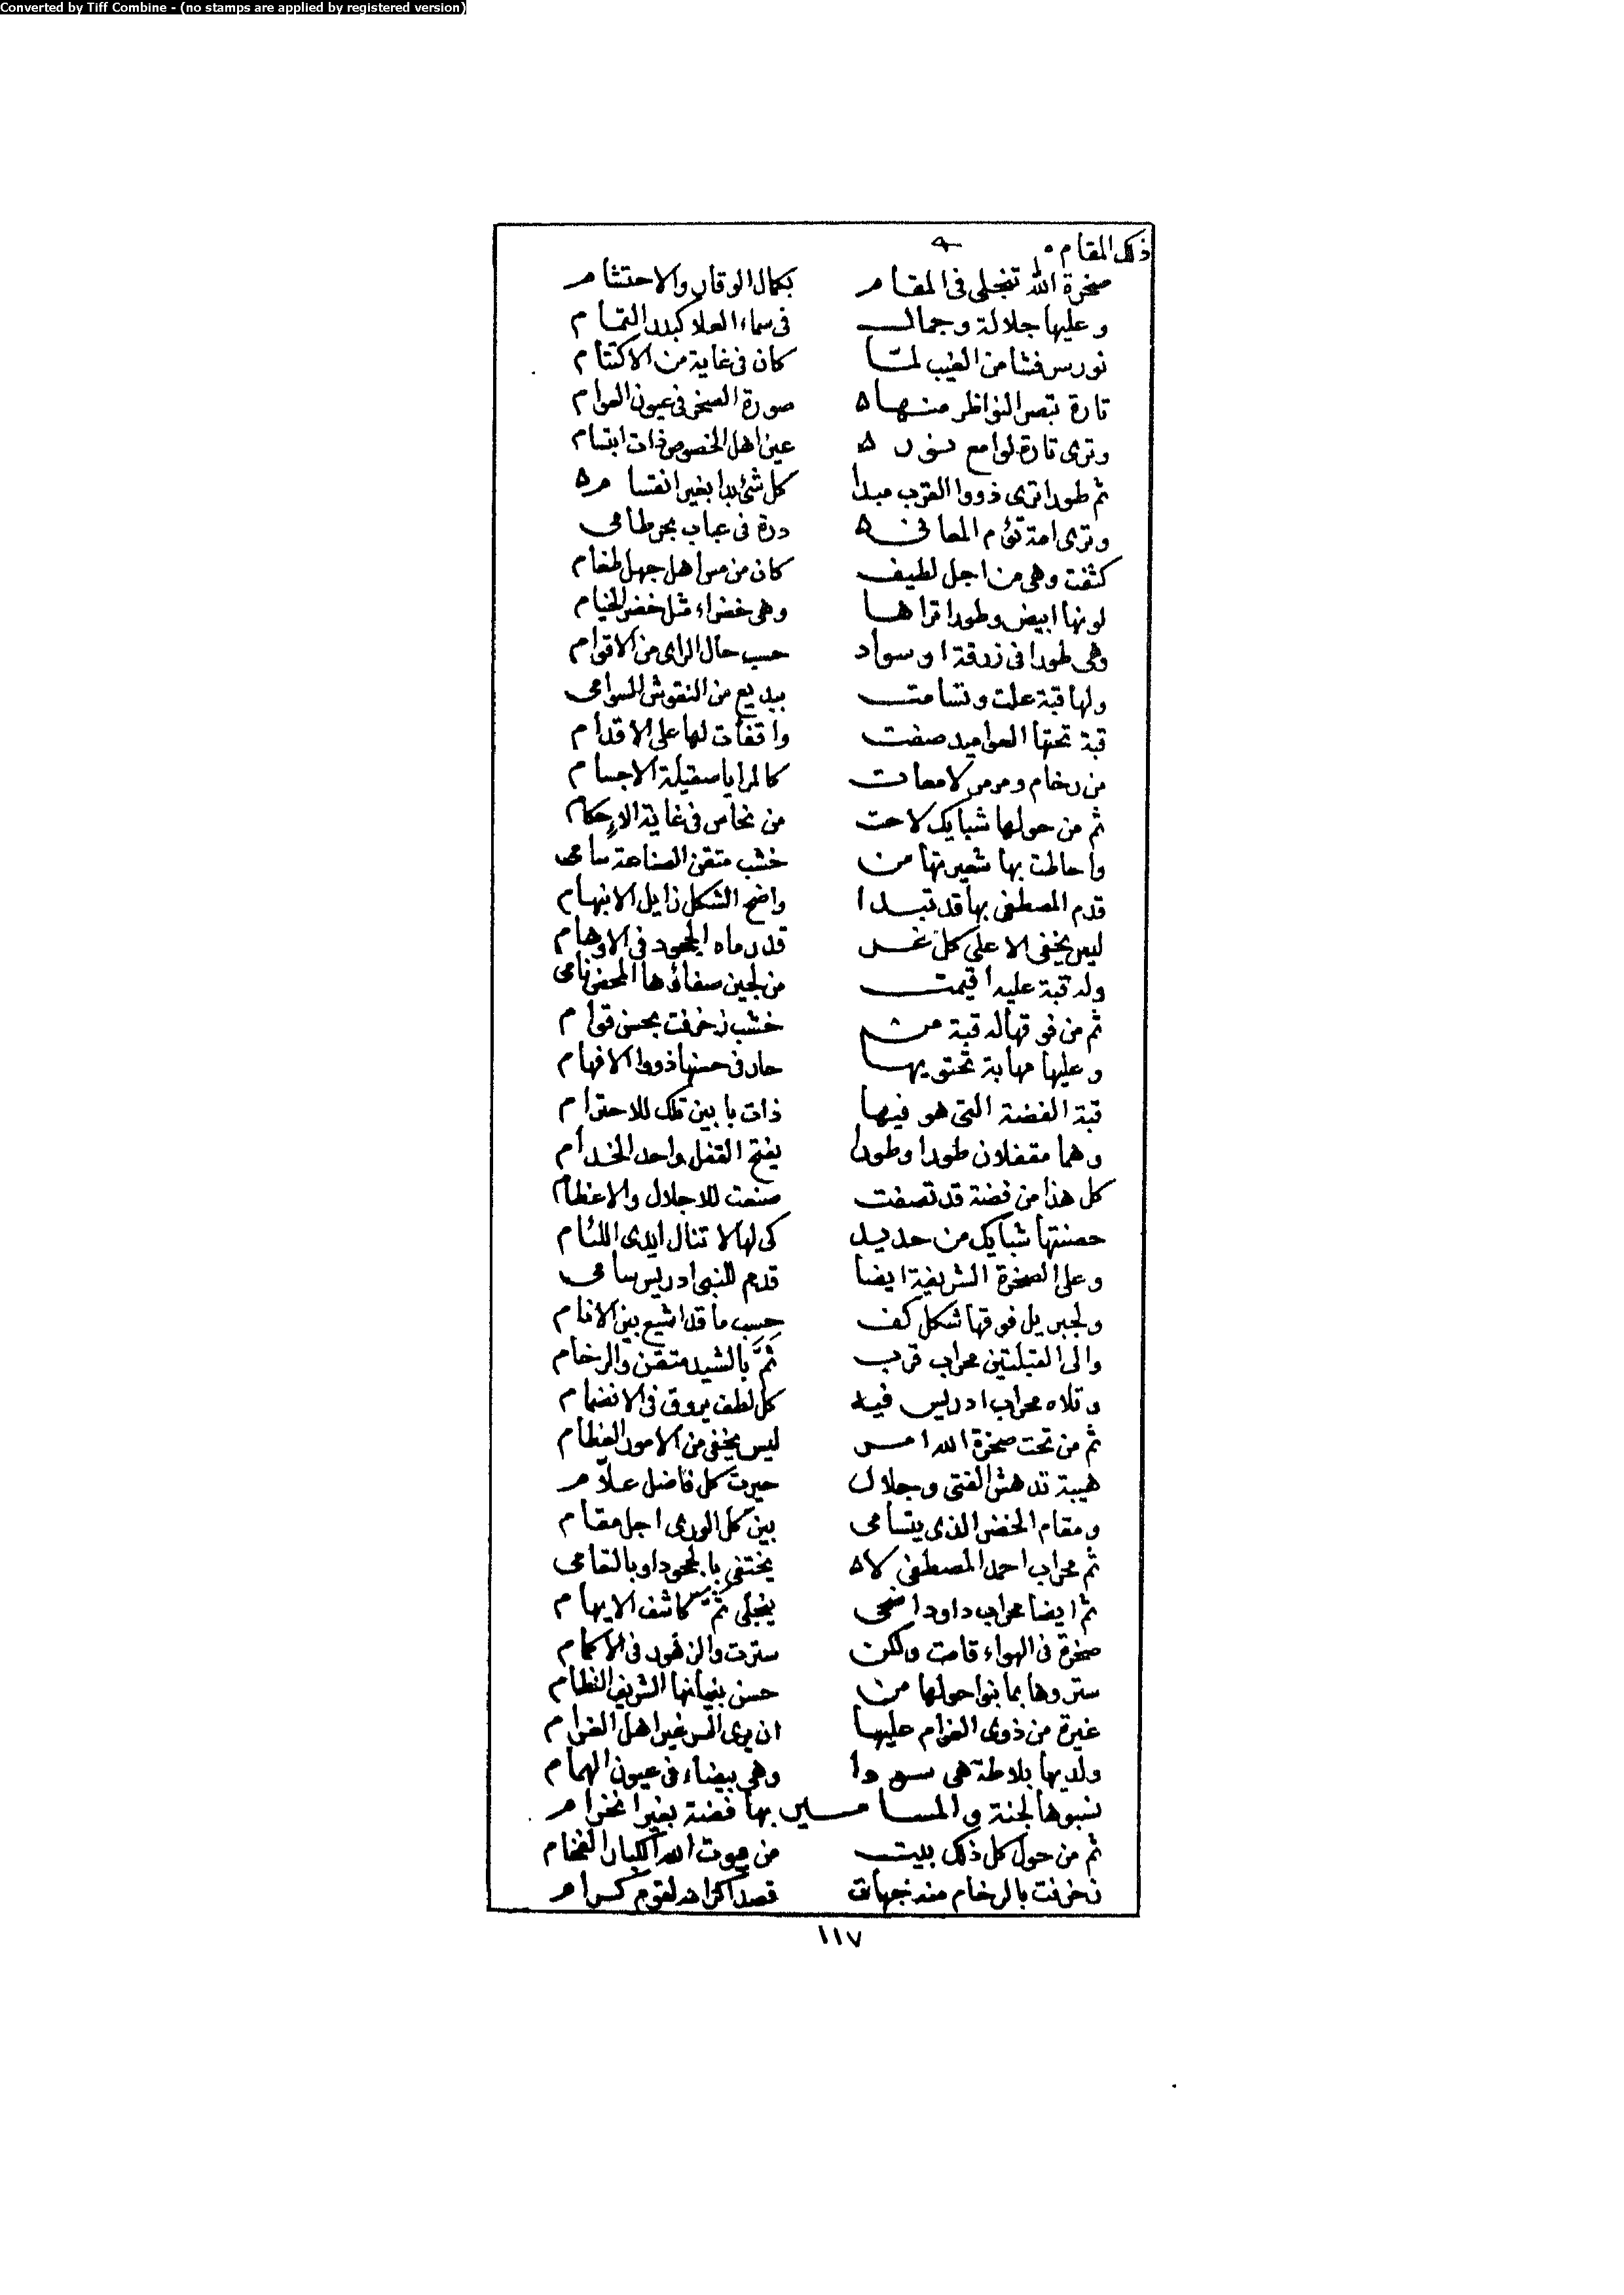 Converted by Tiff Combine - (no stamps are applied by registered version)
ذلك المقام
صخرة الله تنجلي في المقام بكمال الوقار والاحتشام
وعليها جلالة وجمال في سماء العلا كبدر التمام
نور سر فشا من الغيب لما كان في غاية من الاكتتام
تارة تبصر النواظر منها صورة الصخر في عيون العوام
وترى تارة لوامع نور عين اهل الخصوص ذات ابتسام
ثم طورا ترى ذووا القرب مبدا كل شئ بدا بغير انقسام
وترى امة تؤم المعاني درة في عباب بحر طامي
كثفت وهي من اجل لطيف كان من مس اهل جهل طغام
لونها ابيض وطورا تراها وهي خضراء مثل خضر الخيام
وهي طورا في زرقة او سواد حسب حال الراى من الاقوام
ولها قبة علت وتسامت ببديع من النقوش السوامي
قبة تحتها العواميد صفت واقفات لها على الاقدام
من رخام ومرمر لامعات كالمرايا سقيلة الاجسام
ثم من حولها شبابيك لاحت من نحاس في غاية الإحكام
واحاطت بها شعيرتها من خشب متقن الصناعة سامي
قدم المصطفى بها قد تبدا واضح الشكل زايل الابهام
ليس يخفى الا على كل غر قد رماه الجحود في الاوهام
وله قبة عليه اقيمت من لجين صفاؤها المحض نامي
ثم من فوقها له قبة من خشب زخرفت بحسن قوام
وعليها مهابة تحتويها حار في حسنها ذووا الافهام
قبة الفضة التي هو فيها ذات بابين تلك للاحترام
وهما مقفلان طورا وطورا يفتح القفل واحد الخدام
كل هذا من فضة قد تصفت صنعت للاجلال والاعظام
حصنتها شبابيك من حديد كى لها لا تنال ايدى اللئام
وعلى الصخرة الشريفة ايضا قدم للنبي ادريس سامي
ولجبريل فوقها شكل كف حسب ما قد اشيع بين الانام
والى القبلتين محراب قرب ثم بالشيد متقن والرخام
وتلاه محراب ادريس فيه كل لطف يروق في الانضمام
ثم من تحت صخرة الله امر ليس يخفى من الامور العظام
هيبة تدهش الفتى وجلال حيرت كل فاضل علام
ومقام الخضر الذى يتسامى بين كل الورى اجل مقام
ثم محراب احمد المصطفى لا يختفي بالجحود او بالتعامي
ثم ايضا محراب داود اضحى ينجلي ثم كاشف الايهام
صخرة في الهواء قامت ولكن سترت والزهور في الاكمام
ستروها بما بنوا حولها من حسن بنيانها الشريف النظام
غيرة من ذوى الغرام عليها ان يرى السر غير اهل الغرام
ولديها بلاطة هي سودا وهي بيضاء في عيون الهمام
نسبوها لجنة والمسامير بها فضة بغير انخرام
ثم من حول كل ذلك بيت من بيوت الله الكبار الفخام
زخرفت بالرخام منه جهات قصد اكرامه لقوم كرام
١١٧